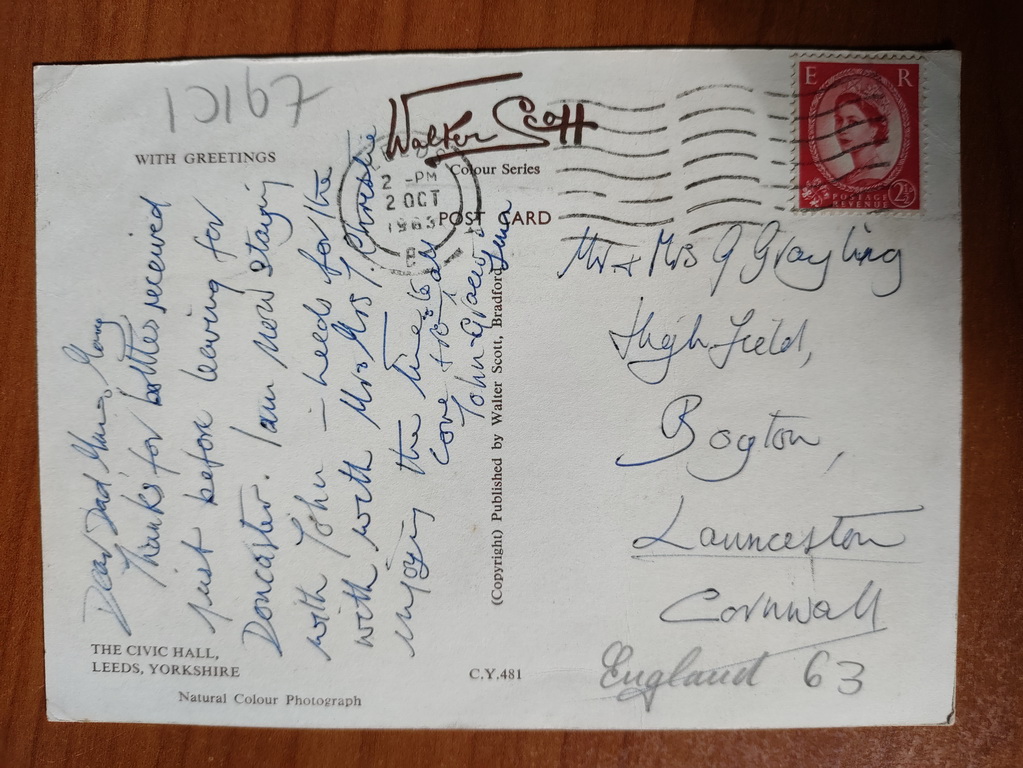 10167
WITH GREETINGS
Walter Scott
Colour Series
POST CARD
2 -PM
2 OCT
1963
E R
POSTAGE
REVENUE
2½
Dear Dad
Thanks for letter received
just before leaving for
Doncaster. I am now staying
with John – Leeds for the
with with Mr & Mrs J. Christie
enjoying the time
love to all
John Gracey
(Copyright) Published by Walter Scott, Bradford
Mr & Mrs G Grayling
High Field,
Boyton,
Launceston
Cornwall
England 63
THE CIVIC HALL,
LEEDS, YORKSHIRE
Natural Colour Photograph
C.Y.481